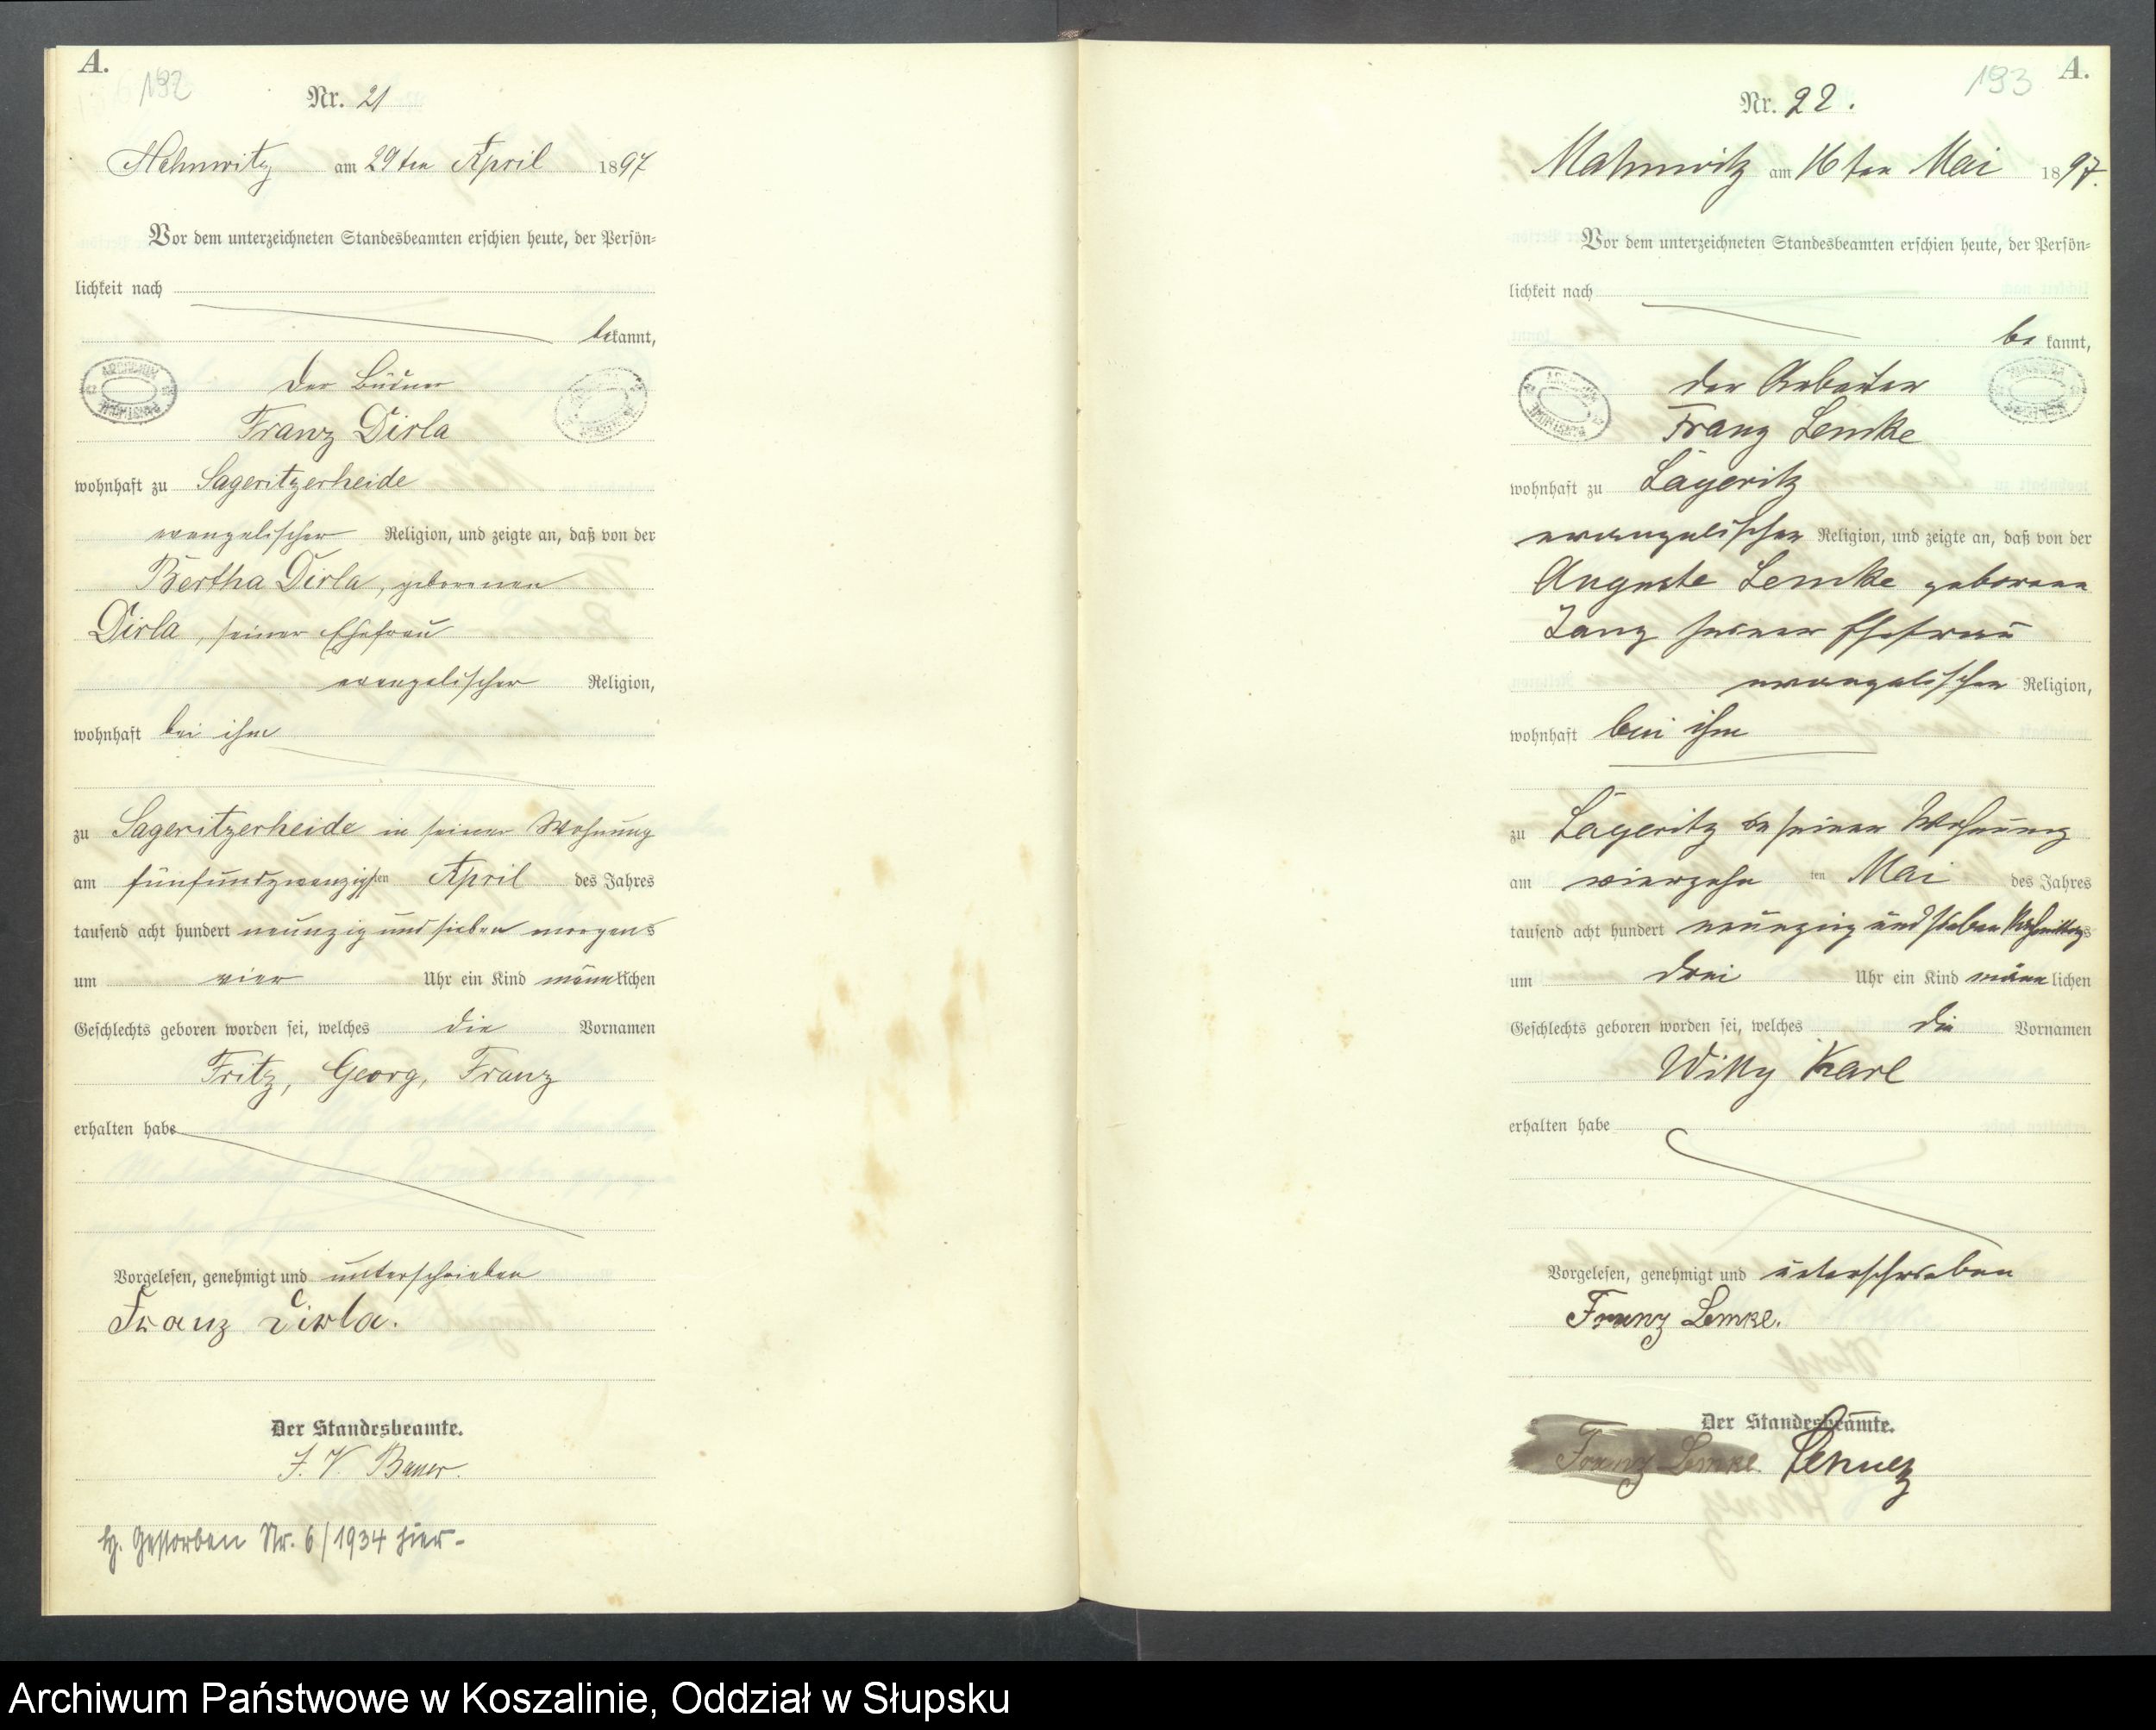 A.
192
Nr. 21
Mahnwitz am 29ten April 1897
Vor dem unterzeichneten Standesbeamten erschien heute, der Persön-
lichkeit nach
bekannt,
der Büdner
Franz Dirla
wohnhaft zu Sageritzerheide
evangelischer Religion, und zeigte an, daß von der
Bertha Dirla, geborenen
Dirla, seiner Ehefrau
evangelischer Religion,
wohnhaft bei ihm
zu Sageritzerheide in seiner Wohnung
am fünfundzwanzigsten April des Jahres
tausend acht hundert neunzig und sieben morgens
um vier Uhr ein Kind männlichen
Geschlechts geboren worden sei, welches die Vornamen
Fritz, Georg, Franz
erhalten habe
Vorgelesen, genehmigt und unterschrieben
Franz Dirla.
Der Standesbeamte.
J. V. Bauer.
Gestorben Nr. 6/1934 hier-
193
A.
Nr. 22.
Mahnwitz am 16ten Mai 1897.
Vor dem unterzeichneten Standesbeamten erschien heute, der Persön-
lichkeit nach
be kannt,
der Arbeiter
Franz Lemke
wohnhaft zu Sageritz
evangelischer Religion, und zeigte an, daß von der
Auguste Lemke geborene
seiner Ehefrau
evangelischer Religion,
wohnhaft bei ihm
zu Sageritz in seiner Wohnung
am vierzehn ten Mai des Jahres
tausend acht hundert neunzig und sieben Nachmittags
um drei Uhr ein Kind männ lichen
Geschlechts geboren worden sei, welches die Vornamen
Willy Karl
erhalten habe
Vorgelesen, genehmigt und unterschrieben
Franz Lemke.
Der Standesbeamte.
Franz Lemke
Archiwum Państwowe w Koszalinie, Oddział w Słupsku